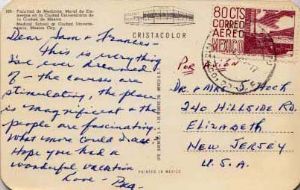 Facultad de Medicina, Mural de Eu-
menegía en la Ciudad Universitaria de
la Ciudad de México
Medical School at Ciudad Univers-
itaria, Mexico City.
CRISTACOLOR
80 CTS
CORREO
AEREO
MEXICO
Por Avión
Dear Sam & Frances –
This is everything
I've ever dreamed
of – the courses are
stimulating, the place
is magnificent & the
people are fascinating.
What more could I ask?
Hope you had a
wonderful vacation
Love –
Dr. & Mrs. J. Hock
240 Hillside Rd
Elizabeth
New Jersey
U.S.A.
PRINTED IN MEXICO